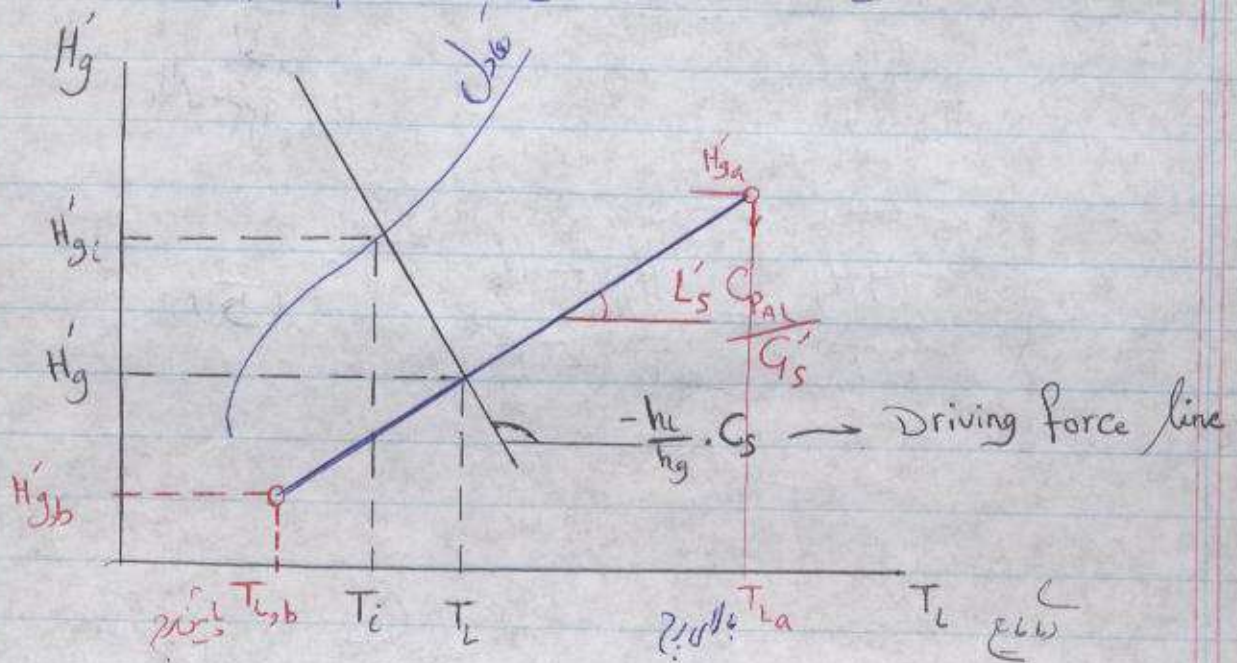 H'g
تعادل
H'g,a
H'gi
L's C_PAL / G's
H'g
-hL/hg . Cs → Driving force line
H'g,b
پایین برج T_L,b T_i T_L بالای برج T_La T_L
مایع